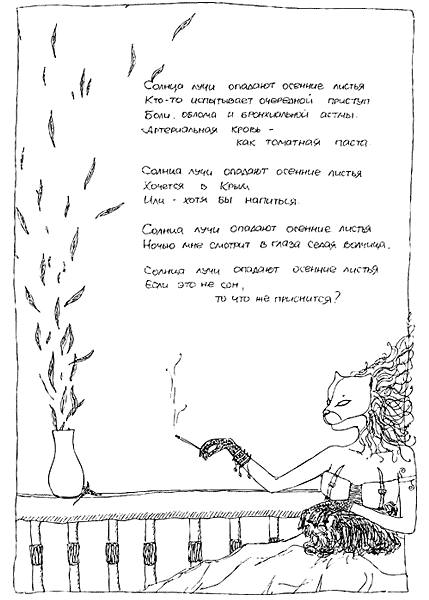 Солнца лучи опадают осенние листья
Кто-то испытывает очередной приступ
Боли, облома и бронхиальной астмы.
Артериальная кровь -
как томатная паста.
Солнца лучи опадают осенние листья
Хочется в Крым
Или - хотя бы напиться.
Солнца лучи опадают осенние листья
Ночью мне смотрит в глаза седая волчица.
Солнца лучи опадают осенние листья
Если это не сон,
то что же приснится?